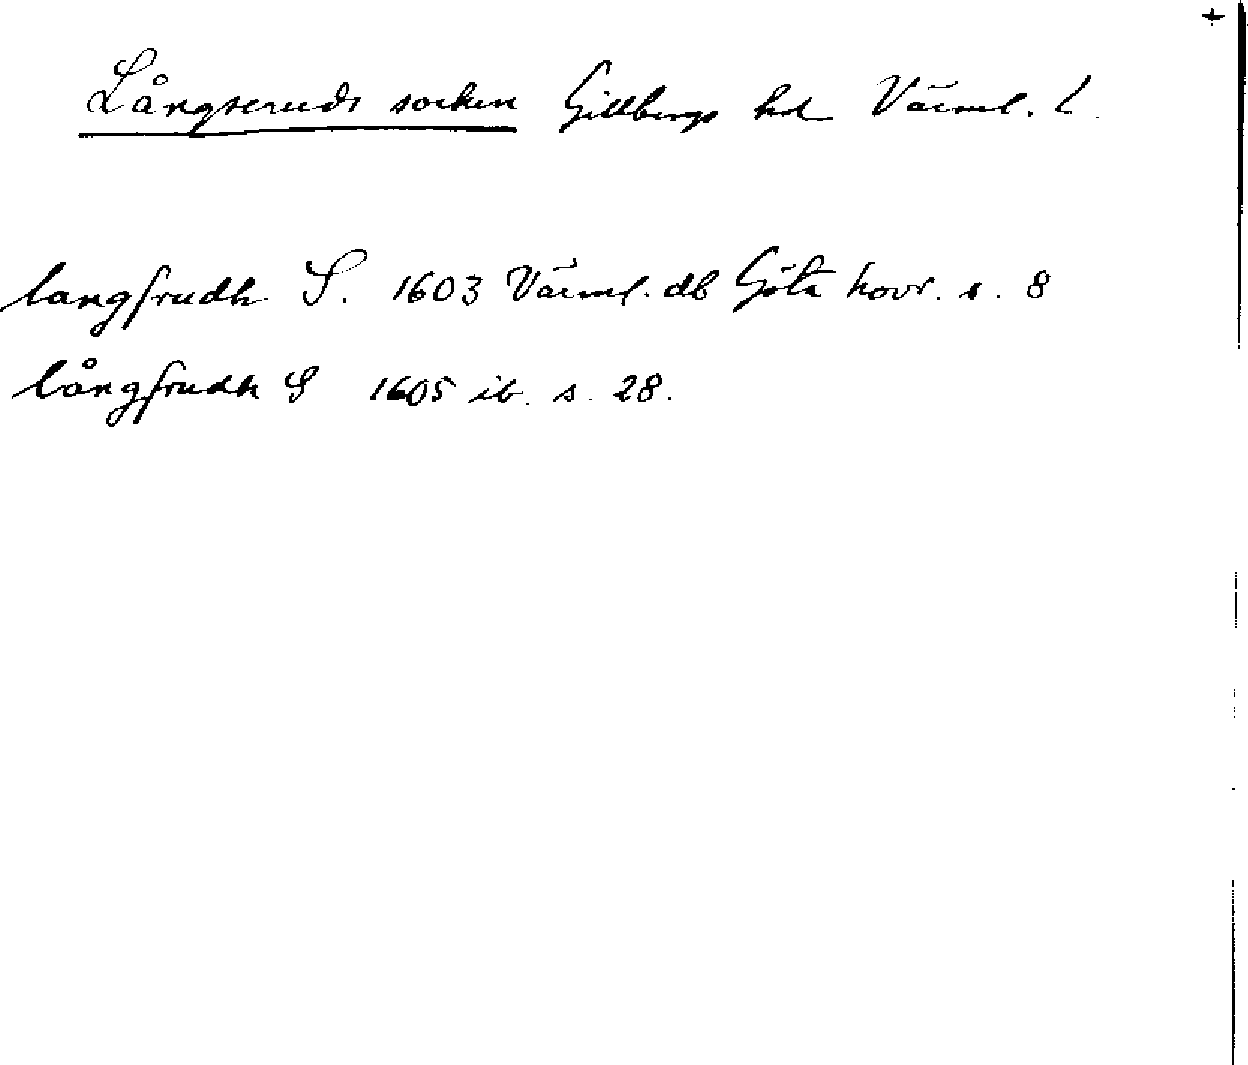 +
Långseruds socken Gillbergs hd Värml. l.
langsrudh S. 1603 Värml. db Göta hovr. s. 8
långsrudh S 1605 ib. s. 28.